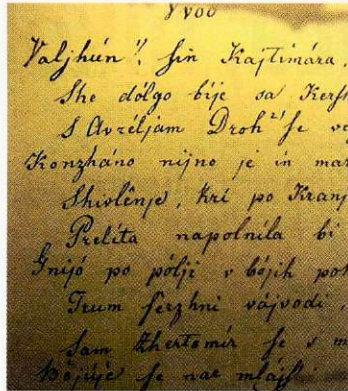 Uvod
Valjhún 1) ſin Kajtimára,
She dólgo bije sa Kerſh
S Avréljam Droh 2) ſe
Konzháno nijno je in
Shivlênje, krí po Kranj
Prelíta napolníla bi
Gnijó po pólji v bójih
Trum ſerzhni vájvodi,
Sam Zhertomír ſe s
Bojúje ſe